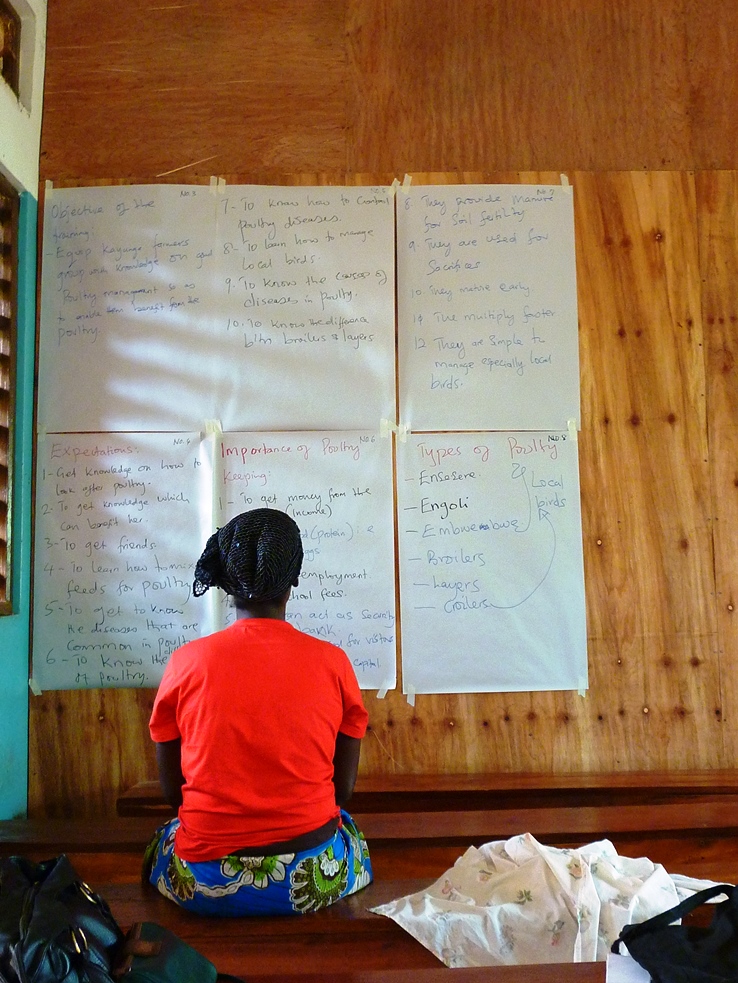 No. 3
Objective of the
training.
- Equip Kayunga farmers
group with knowledge on good
Poultry management so as
to enable them benefit from the
poultry.
7- To know how to Control
Poultry diseases.
8- To learn how to manage
Local birds.
9. To know the causes of
diseases in poultry.
10. To know the difference
btn broilers & layers
No. 7
8 They provide Manure
for Soil fertility
9. They are used for
Sacrifices
10. They mature early
11 The multiply faster
12 They are Simple to
manage especially Local
birds.
No. 4
Expectations:
1- Get knowledge on how to
look after poultry.
2. To get knowledge which
can benefit her.
3- To get friends.
4 - To learn how to mix
feeds for poultry
5- To get to know
the diseases that are
Common in poultry
6 - To know the
of poultry.
No. 6
Importance of Poultry
Keeping:
1 - To get money from the
(income)
(protein) i.e
eggs
employment
school fees.
5 can act as Security
bank
for visitors
Capital.
No. 8
Types of Poultry
- Ensesere
- Engoli
- Embwenabwe
- Broilers
- Layers
- Croilers
Local
birds